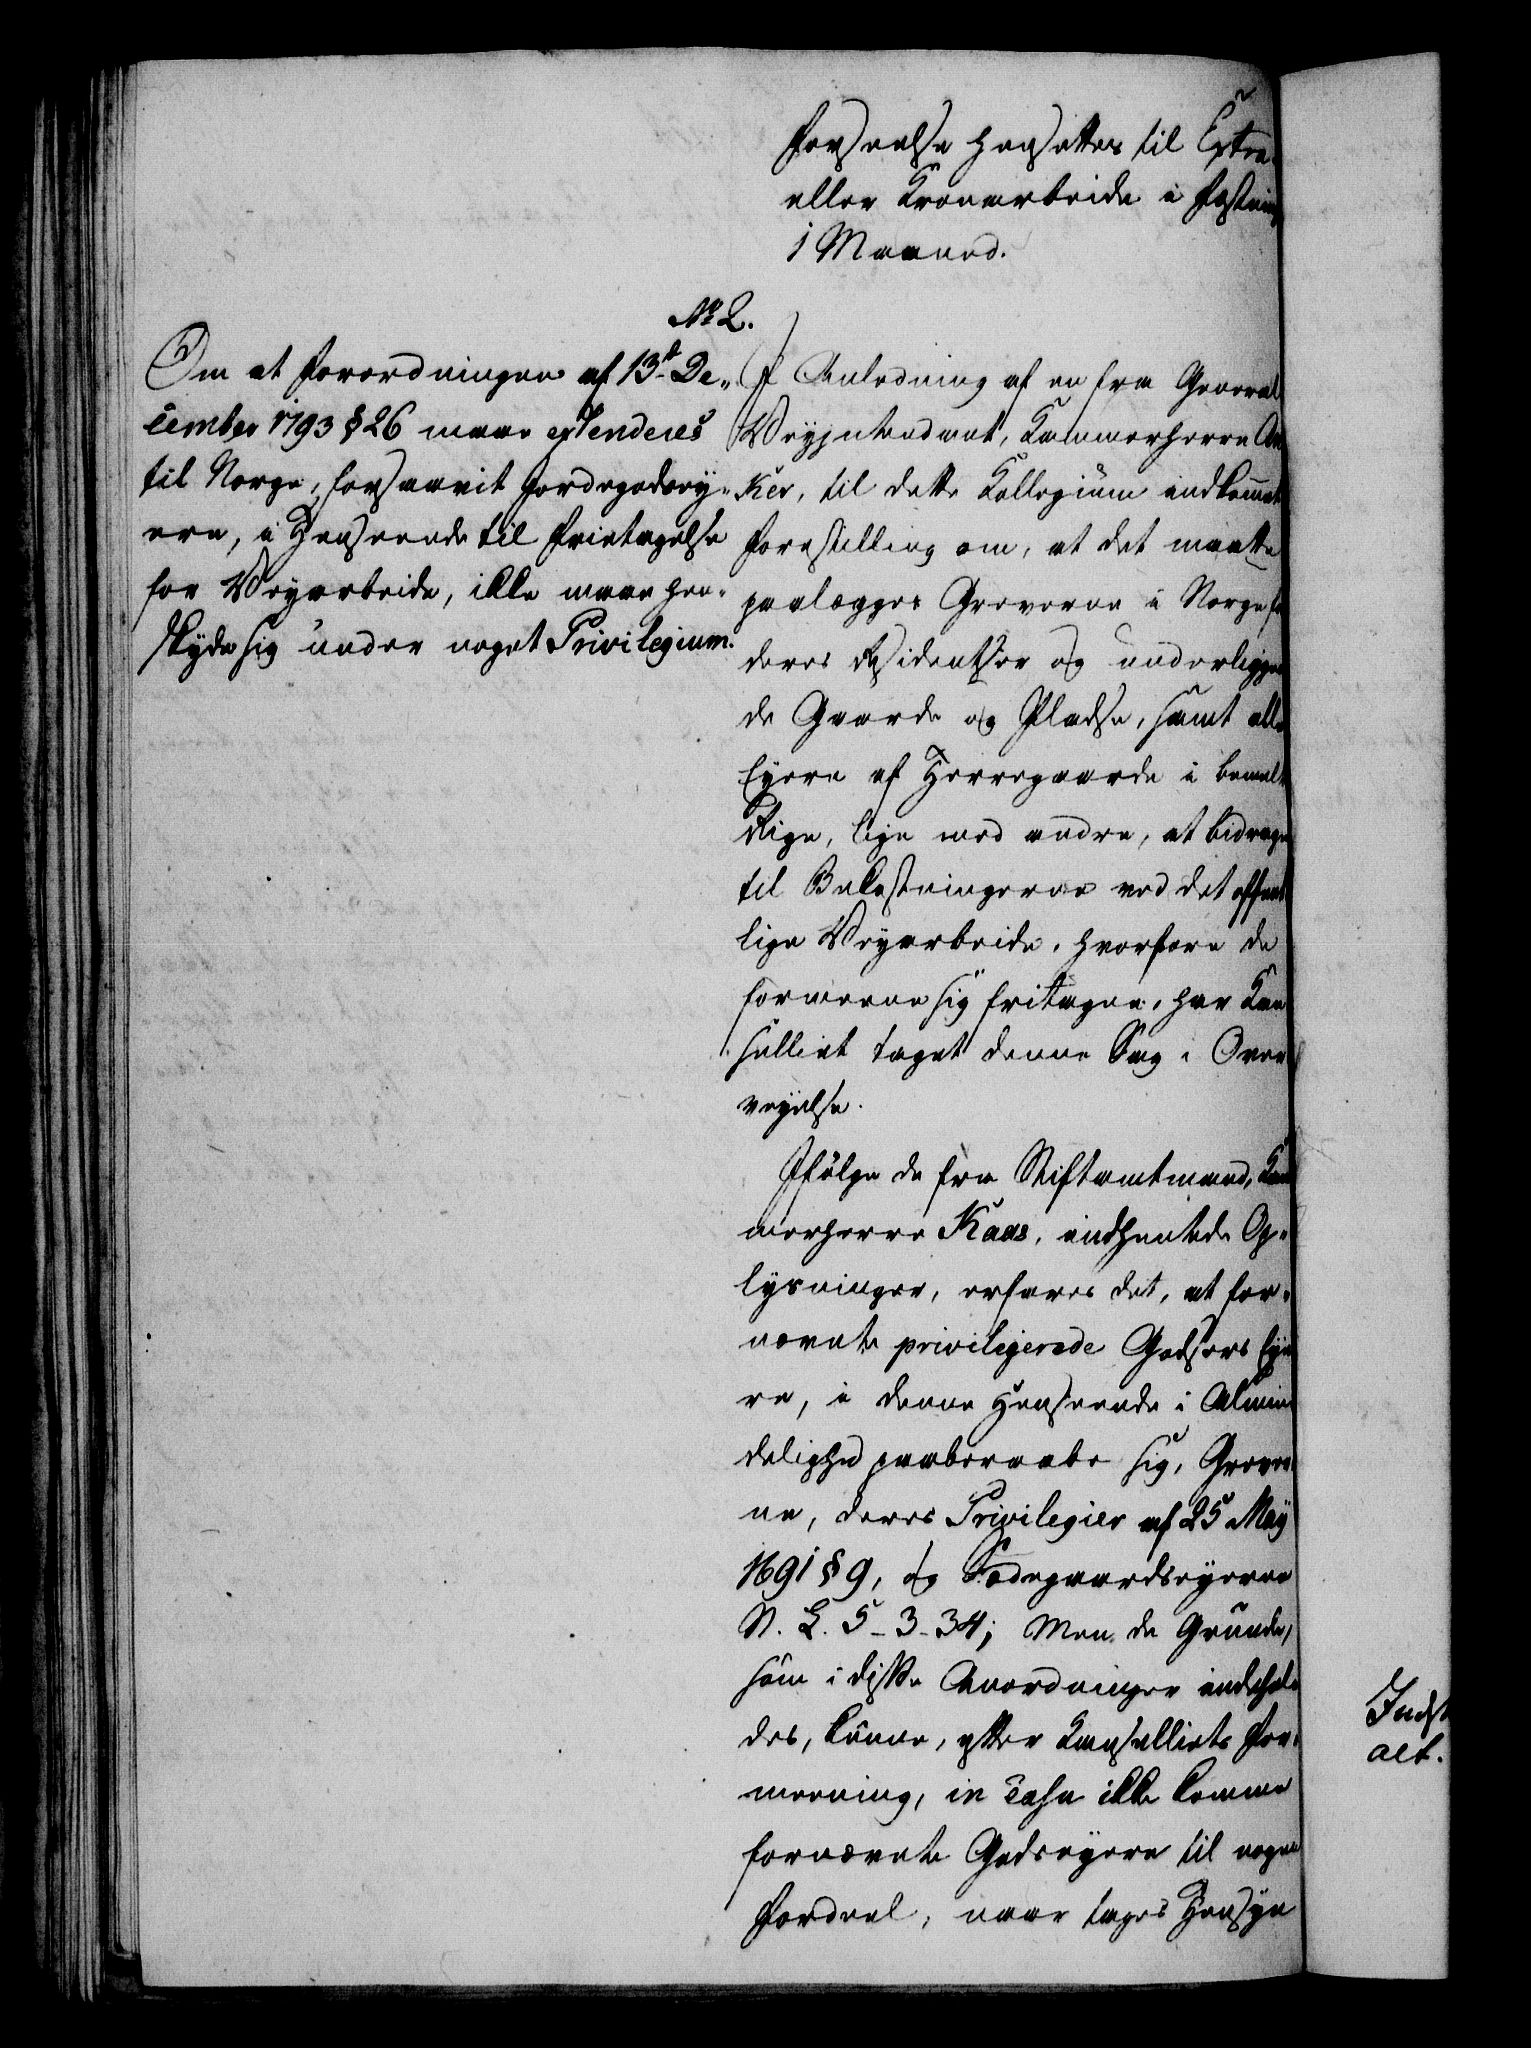 Forseelse hensættes til Extra-
eller Kronarbeide i Fæstning
1 Maaned.
No 2.
Om at Forordningen af 13de De-
cember 1793 § 26 maae extenderes
til Norge, forsaavit Jordegodsey-
ere, i Henseende til Fritagelse
for Veyarbeide, ikke maae hen-
skyde sig under noget Privilegium.
I Anledning af en fra General
Veyintendant, Kammerherre An
ker, til dette Kollegium indkommet
Forestilling om, at det maatte
paalægges Greverne i Norge for
deres Residentser og underliggen
de Gaarde og Pladse, samt alle
Eyere af Herregaarde i bemeldte
Rige, lige med andre, at bidrage
til Bekostningerne ved det offent
lige Veyarbeide, hvorfore de
formeene sig fritagne, har Kan
selliet taget denne Sag i Over
veyelse.
Ifølge de fra Stiftamtmand, Kam
merherre Kaas, indhentede Op-
lysninger, erfares det, at for-
nævnte privilegerede Godsers Eye
re, i denne Henseende i Almin
delighed paaberaabe sig, Grever
ne, deres Privilegier af 25 May
1691 § 9, og Sædegaardseyerne
N. L. 5-3-34; Men de Grunde,
som i disse Anordninger indehol
des, kunne, efter Kanselliets For-
meening, in casu ikke komme
fornævnte Godseyere til nogen
Fordeel, naar tages Hensyn
Indst
act.